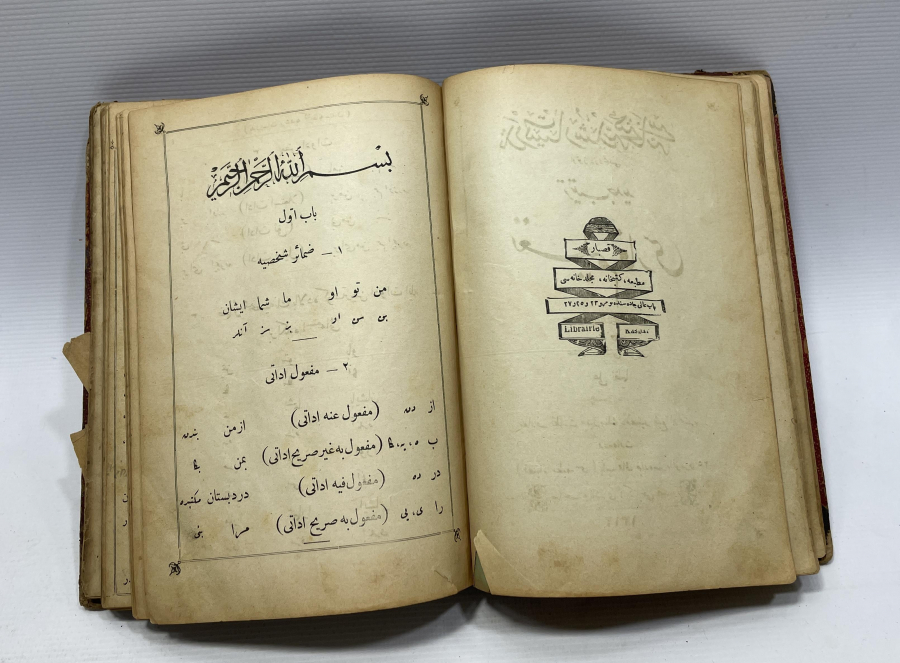 قصبار
مطبعه، کتبخانه، مجلدخانه سی
باب عالی جاده سنده نومرو ٢٣ و ٢٥ و ٢٧
Librairie
بسم الله الرحمن الرحيم
باب اول
١ — ضمائر شخصیه
من تو او ما شما ایشان
بن سن او بز سز آنلر
٢ — مفعول اداتی
از دن (مفعول عنه اداتی) ازمن بندن
ب ه، یه، كا (مفعول به غیر صریح اداتی) بمن بكا
در ده (مفعول فیه اداتی) در دبستان مکتبده
را ی، یی (مفعول به صریح اداتی) مرا بنی